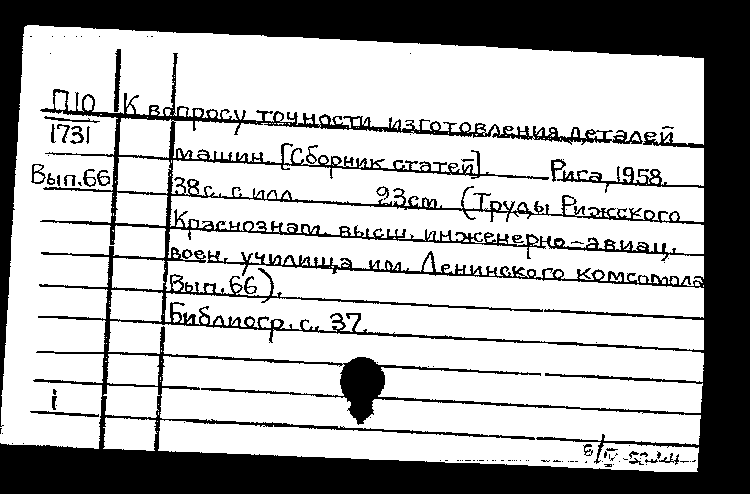 П10 К вопросу точности изготовления деталей
1731
машин. [Сборник статей]. Рига, 1958.
Вып.66 38с. с илл. 23см. (Труды Рижского
Краснознам. высш. инженерно-авиац.
воен. училища им. Ленинского комсомола
Вып. 66).
Библиогр. с. 37.
i